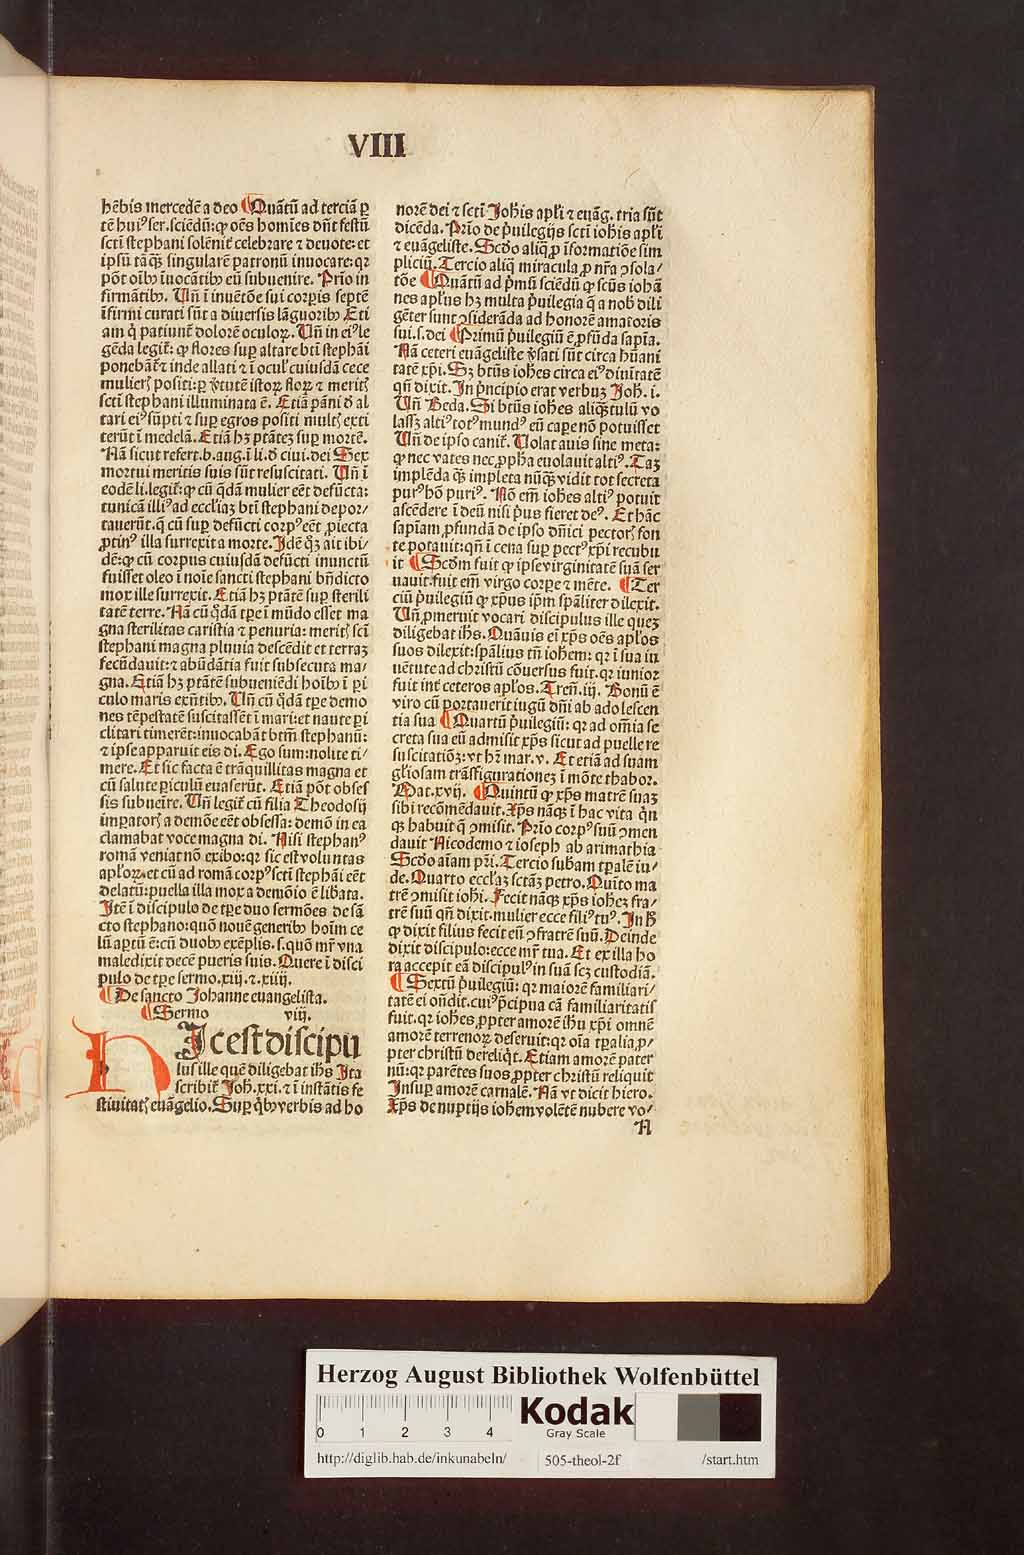 VIII
hēbis mercedē a deo ¶ Quātū ad terciā ꝑ
tē huiꝰ ser. sciēdū: ꝙ oēs homīes dn̄t festū
scti stephani solēnit̄ celebrare ⁊ deuote: et
ipsū tāqꝫ singularē patronū inuocare: qꝛ
pōt oībꝰ īuocātibꝰ eū subuenire. Prīo in
firmātibꝰ. Un̄ ī inuētōe sui corꝑis septē
īfirmi curati sūt a diuersis lāguoribꝰ Eti
am q̄ patiunt̄ dolorē oculoꝝ. Un̄ in eiꝰ le
gēda legit̄: ꝙ flores suꝑ altare bti stephāi
ponebāt̄ ⁊ inde allati ⁊ ī oculꝭ cuiusdā cece
mulierꝭ positi: ꝑ v̓tutē istoꝝ floꝝ ⁊ meritꝭ
scti stephani illuminata ē. Etiā pāni ď al
tari eiꝰ sūpti ⁊ suꝑ egros positi multꝭ exti
terūt ī medelā. Etiā hꝫ ptātēꝫ suꝑ mortē.
Nā sicut refert. b. aug. ī li. ď ciui. dei Sex
mortui meritis suis sūt resuscitati. Un̄ ī
eodē li. legit̄: ꝙ cū q̄dā mulier eēt defūcta:
tunicā illiꝰ ad eccl̓iaꝫ bti stephani depor⸗
tauerūt. q̄ cū suꝑ defūcti corpꝰ eēt ꝓiecta
ꝓtinꝰ illa surrexit a morte. Idē qꝫ ait ibi⸗
dē: ꝙ cū corpus cuiusdā defūcti inunctū
fuisset oleo ī noīe sancti stephani bn̄dicto
mox ille surrexit. Etiā hꝫ ptātē suꝑ sterili
tatē terre. Nā cū q̄dā tꝑe ī mūdo esset ma
gna sterilitas caristia ⁊ penuria: meritꝭ scī
stephani magna pluuia descēdit et terraꝫ
fecūdauit: ⁊ abūdātia fuit subsecuta ma⸗
gna. Etiā hꝫ ptātē subueniēdi hoībꝰ ī ꝑi
culo maris exn̄tibꝰ. Un̄ cū q̄dā tꝑe demo
nes tēpestatē suscitassēt ī mari: et naute ꝑi
clitari timerēt: inuocabāt btm̄ stephanū:
⁊ ipse apparuit eis di. Ego sum: nolite ti⸗
mere. Et sic facta ē trāquillitas magna et
cū salute ꝑiculū euaserūt. Etiā pōt obses
sis subueīre. Un̄ legit̄ cū filia Theodosij
imꝑatorꝭ a demōe eēt obsessa: demō in ea
clamabat voce magna di. Nisi stephanꝰ
romā veniat nō exibo: qꝛ sic est voluntas
apl̓oꝝ. et cū ad romā corpꝰ scti stephāi eēt
delatū: puella illa mox a demōio ē libata.
Itē ī discipulo de tꝑe duo sermōes de sā
cto stephano: quō nouē generibꝰ hoīm ce
lū aꝑtū ē: cū duobꝰ exēplis. s. quō mr̄ vna
maledixit decē pueris suis. Quere ī disci
pulo de tꝑe sermo. xiij. ⁊. xiiij.
¶ De sancto Johanne euangelista.
¶ Sermo viij.
HIc est discipu
lus ille quē diligebat ihs Ita
scribit̄ Joh. xxi. ⁊ ī instātis fe
stiuitatꝭ euāgelio. Suꝑ qͥbꝰ verbis ad ho
norē dei ⁊ scti Johis apl̓i ⁊ euāg. tria sūt
dicēda. Prīo de p̓uilegijs scti iohis apl̓i
⁊ euāgeliste. Scd̓o aliq̄ ꝓ īformatiōe sim
pliciū. Tercio aliq̄ miracula, ꝓ nr̄a ꝯsola⸗
tōe ¶ Quātū ad p̓mū sciēdū ꝙ scūs iohā
nes apl̓us hꝫ multa p̓uilegia q̄ a nob̓ dili
gēter sunt ꝯsiderāda ad honorē amatoris
sui. s. dei ¶ Primū p̓uilegiū ē ꝓfūda sapīa.
Nā ceteri euāgeliste v̓sati sūt circa hūani
tatē xp̄i. Sꝫ btūs iohes circa eiꝰ diuītatē
qn̄ dixit. In p̓ncipio erat verbuꝫ Joh. i.
Un̄ Beda. Si btūs iohes aliqͣtulū vo
lassꝫ altiꝰ totꝰ mundꝰ eū caꝑe nō potuisset
Un̄ de ipso canit̄. Volat auis sine meta:
ꝙ nec vates nec ꝓpha euolauit altiꝰ. Taꝫ
implēda qͣꝫ impleta nūqͣꝫ vidit tot secreta
purꝰ hō puriꝰ. Nō em̄ iohes altiꝰ potuit
ascēdere ī deū nisi p̓us fieret deꝰ. Et hāc
sapīam, ꝓfundā de ipso dn̄ici pectorꝭ fon
te potauit: qn̄ ī cena suꝑ pectꝰ xp̄i recubu
it ¶ Scd̓m fuit ꝙ ipse virginitatē suā ser
uauit: fuit em̄ virgo corꝑe ⁊ mēte. ¶ Ter
ciū p̓uilegiū ꝙ xp̄us ip̄m spāliter dilexit.
Un̄ ꝓmeruit vocari discipulus ille queꝫ
diligebat ihs. Quāuis eī xp̄s oēs apl̓os
suos dilexit: spālius tn̄ iohem: qꝛ ī sua iu
uētute ad christū cōuersus fuit. qꝛ iunior
fuit int̄ ceteros apl̓os. Tren̄. iij. Bonū ē
viro cū portauerit iugū dn̄i ab adolescen
tia sua ¶ Quartū p̓uilegiū: qꝛ ad om̄ia se
creta sua eū admisit xp̄s sicut ad puelle re
suscitatiōꝫ: vt hꝛ̄ mar. v. Et etiā ad suam
gl̓iosam trāsfigurationeꝫ ī mōte thabor.
Mat. xvij. ¶ Quintū ꝙ xp̄s matrē suaꝫ
sibi recōmēdauit. Xp̄s nāqꝫ ī hac vita qͥn
qꝫ habuit q̄ ꝯmisit. Prīo corpꝰ suū ꝯmen
dauit Nicodemo ⁊ ioseph ab arimathia
Scd̓o aīam pr̄i. Tercio subam tꝑalē iu⸗
de. Quarto eccl̓aꝫ sctāꝫ petro. Quīto ma
trē ꝯmisit iohi. Fecit nāqꝫ xp̄s iohēꝫ fra⸗
trē suū qn̄ dixit. mulier ecce filiꝰ tuꝰ. In ꝟ
ꝙ dixit filius fecit eū ꝯfratrē suū. Deinde
dixit discipulo: ecce mr̄ tua. Et ex illa ho
ra accepit eā discipulꝰ in suā scꝫ custodiā.
¶ Sextū p̓uilegiū: qꝛ maiorē familiari⸗
tatē ei on̄dit. cuiꝰ p̓cipua cā familiaritatis
fuit. qꝛ iohes ꝓpter amorē ihu xp̄i omnē
amorē terrenoꝝ deseruit: qꝛ oīa tꝑalia, ꝓ⸗
pter christū dereliqͥt. Etiam amorē pater
nū: qꝛ parētes suos ꝓpter christū reliquit
Insuꝑ amorē carnalē. Nā vt dicit hiero.
Xp̄s de nuptijs iohem volētē nubere vo⸗
A
Herzog August Bibliothek Wolfenbüttel
0 1 2 3 4
Kodak
Gray Scale
http://diglib.hab.de/inkunabeln/ 505-theol-2f /start.htm